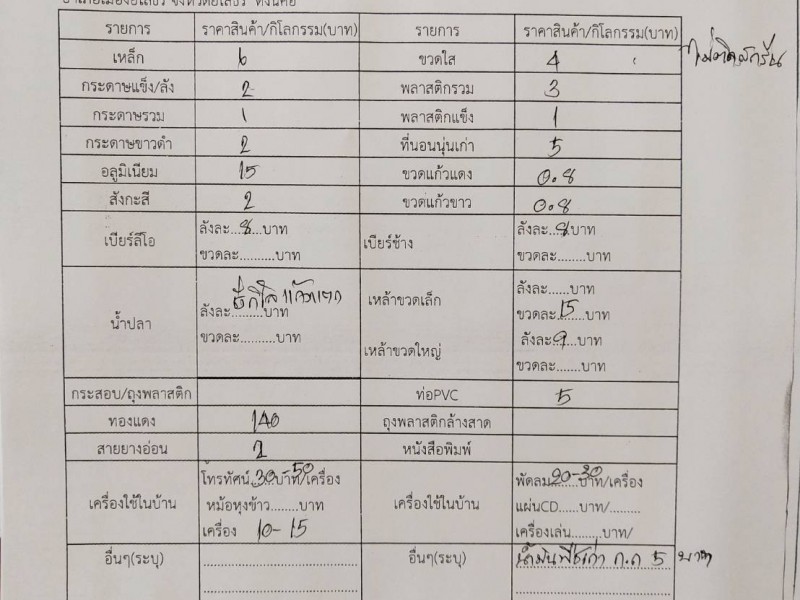 รายการ ราคาสินค้า/กิโลกรรม(บาท) รายการ ราคาสินค้า/กิโลกรรม(บาท)
เหล็ก 6 ขวดใส 4
กระดาษแข็ง/ลัง 2 พลาสติกรวม 3
กระดาษรวม 1 พลาสติกแข็ง 1
กระดาษขาวดำ 2 ที่นอนนุ่นเก่า 5
อลูมิเนียม 15 ขวดแก้วแดง 0.8
สังกะสี 2 ขวดแก้วขาว 0.8
เบียร์ลีโอ ลังละ...8...บาท เบียร์ช้าง ลังละ...8...บาท
ขวดละ..........บาท ขวดละ........บาท
น้ำปลา ลังละ.........บาท เหล้าขวดเล็ก ลังละ......บาท
ขวดละ.........บาท ขวดละ..15..บาท
เหล้าขวดใหญ่ ลังละ..9...บาท
ขวดละ.......บาท
กระสอบ/ถุงพลาสติก ท่อPVC 5
ทองแดง 140 ถุงพลาสติกล้างสาด
สายยางอ่อน 2 หนังสือพิมพ์
เครื่องใช้ในบ้าน โทรทัศน์ 30-50 บาท/เครื่อง เครื่องใช้ในบ้าน พัดลม 20-30 บาท/เครื่อง
หม้อหุงข้าว.......บาท แผ่นCD.....บาท/.........
เครื่อง 10-15 เครื่องเล่น.........บาท/
อื่นๆ(ระบุ) อื่นๆ(ระบุ) น้ำมันพืชเก่า ก.ก 5 บาท